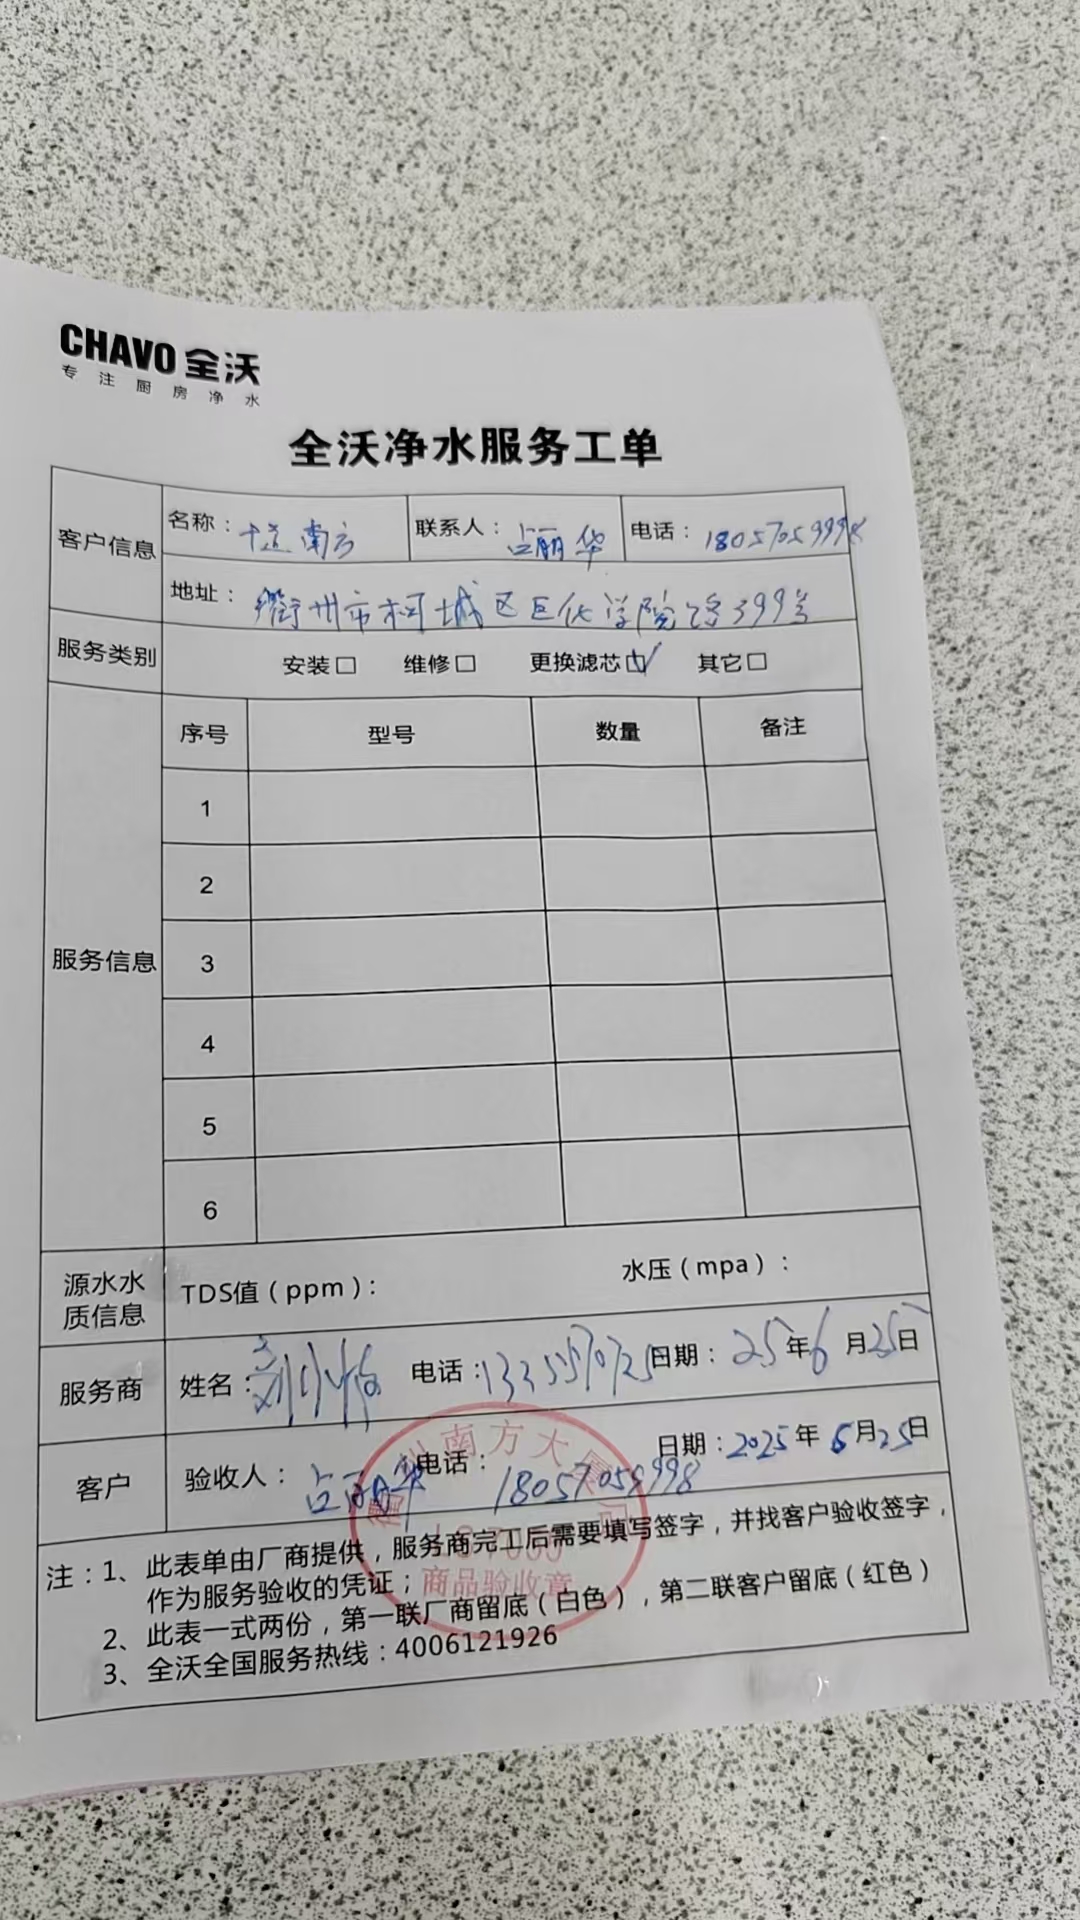 CHAVO 全沃
专注厨房净水
全沃净水服务工单
客户信息
名称： 南方 联系人：占丽华 电话：18057059998
地址：衢州市柯城区巨化学院路399号
服务类别 安装□ 维修□ 更换滤芯☑ 其它□
服务信息
序号 型号 数量 备注
1
2
3
4
5
6
源水水质信息 TDS值（ppm）： 水压（mpa）：
服务商 姓名：刘小 电话： 日期：25年6月25日
客户 验收人：占丽华 电话：18057059998 日期：2025年6月25日
南方大
商品验收章
注：1、此表单由厂商提供，服务商完工后需要填写签字，并找客户验收签字，
作为服务验收的凭证；
2、此表一式两份，第一联厂商留底（白色），第二联客户留底（红色）
3、全沃全国服务热线：4006121926